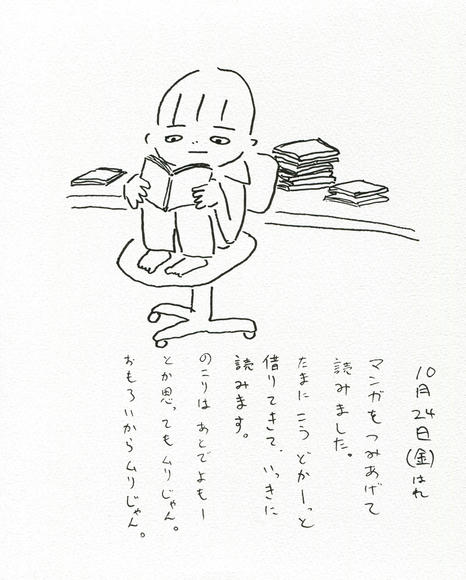 10月24日(金)はれ
マンガをつみあげて
読みました。
たまにこうどかーっと
借りてきて、いっきに
読みます。
のこりはあとでよもー
とか思ってもムリじゃん。
おもろいからムリじゃん。